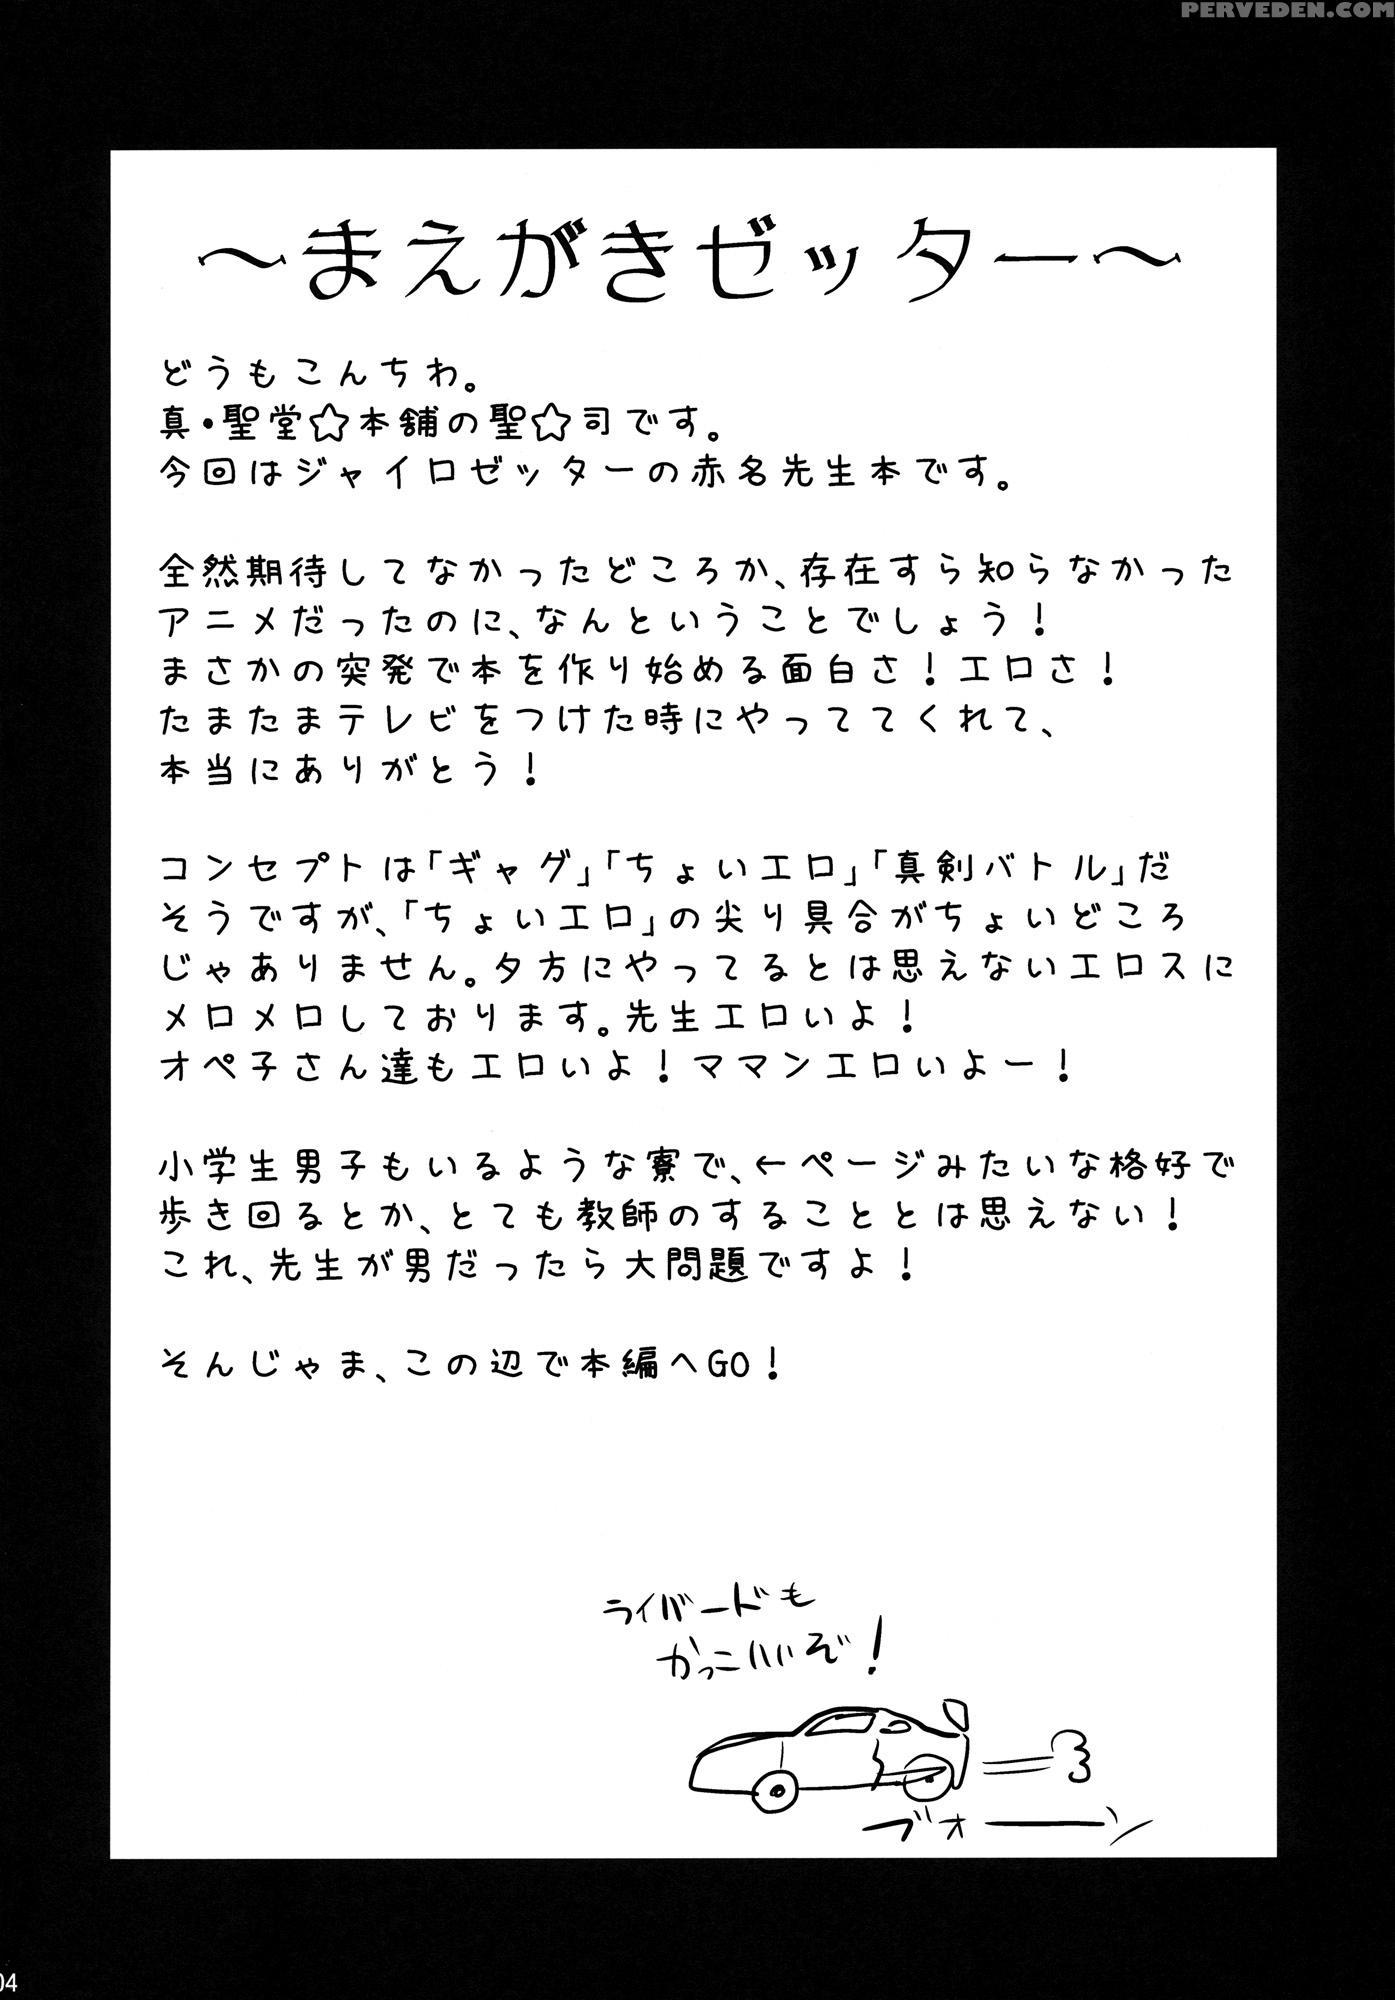 PERVEDEN.COM
～まえがきゼッター～
どうもこんちわ。
真・聖堂☆本舗の聖☆司です。
今回はジャイロゼッターの赤名先生本です。
全然期待してなかったどころか、存在すら知らなかった
アニメだったのに、なんということでしょう！
まさかの突発で本を作り始める面白さ！エロさ！
たまたまテレビをつけた時にやっててくれて、
本当にありがとう！
コンセプトは「ギャグ」「ちょいエロ」「真剣バトル」だ
そうですが、「ちょいエロ」の尖り具合がちょいどころ
じゃありません。夕方にやってるとは思えないエロスに
メロメロしております。先生エロいよ！
オペ子さん達もエロいよ！ママンエロいよー！
小学生男子もいるような寮で、←ページみたいな格好で
歩き回るとか、とても教師のすることとは思えない！
これ、先生が男だったら大問題ですよ！
そんじゃま、この辺で本編へGO！
ライバードも
かっこいいぞ！
ブオーーン
04